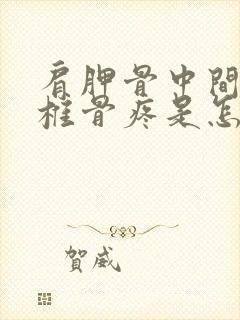 肩胛骨中間
椎骨疼是怎
賀威